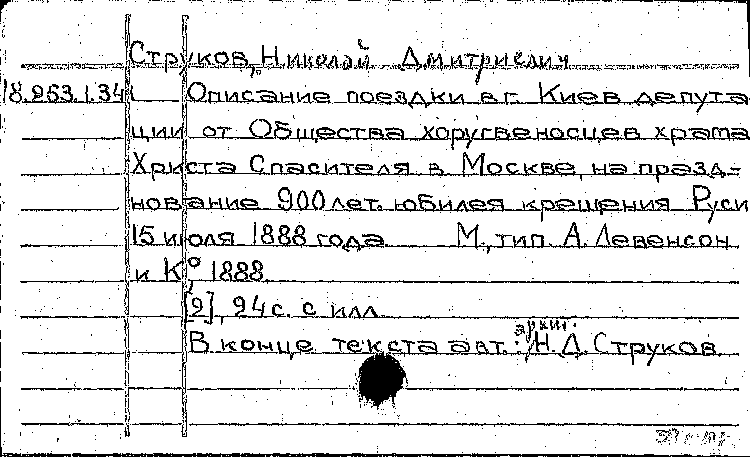 Струков, Николай Дмитриевич
18.253.1.34 Описание поездки в г. Киев депута
ции от Общества хоругвеносцев храма
Христа Спасителя в Москве, на празд-
нование 900 лет. юбилея крещения Руси
15 июля 1888 года М., тип. А. Левенсон
и К°, 1888.
[2], 24 с. с илл.
В конце текста авт.: архит. Н. Д. Струков.